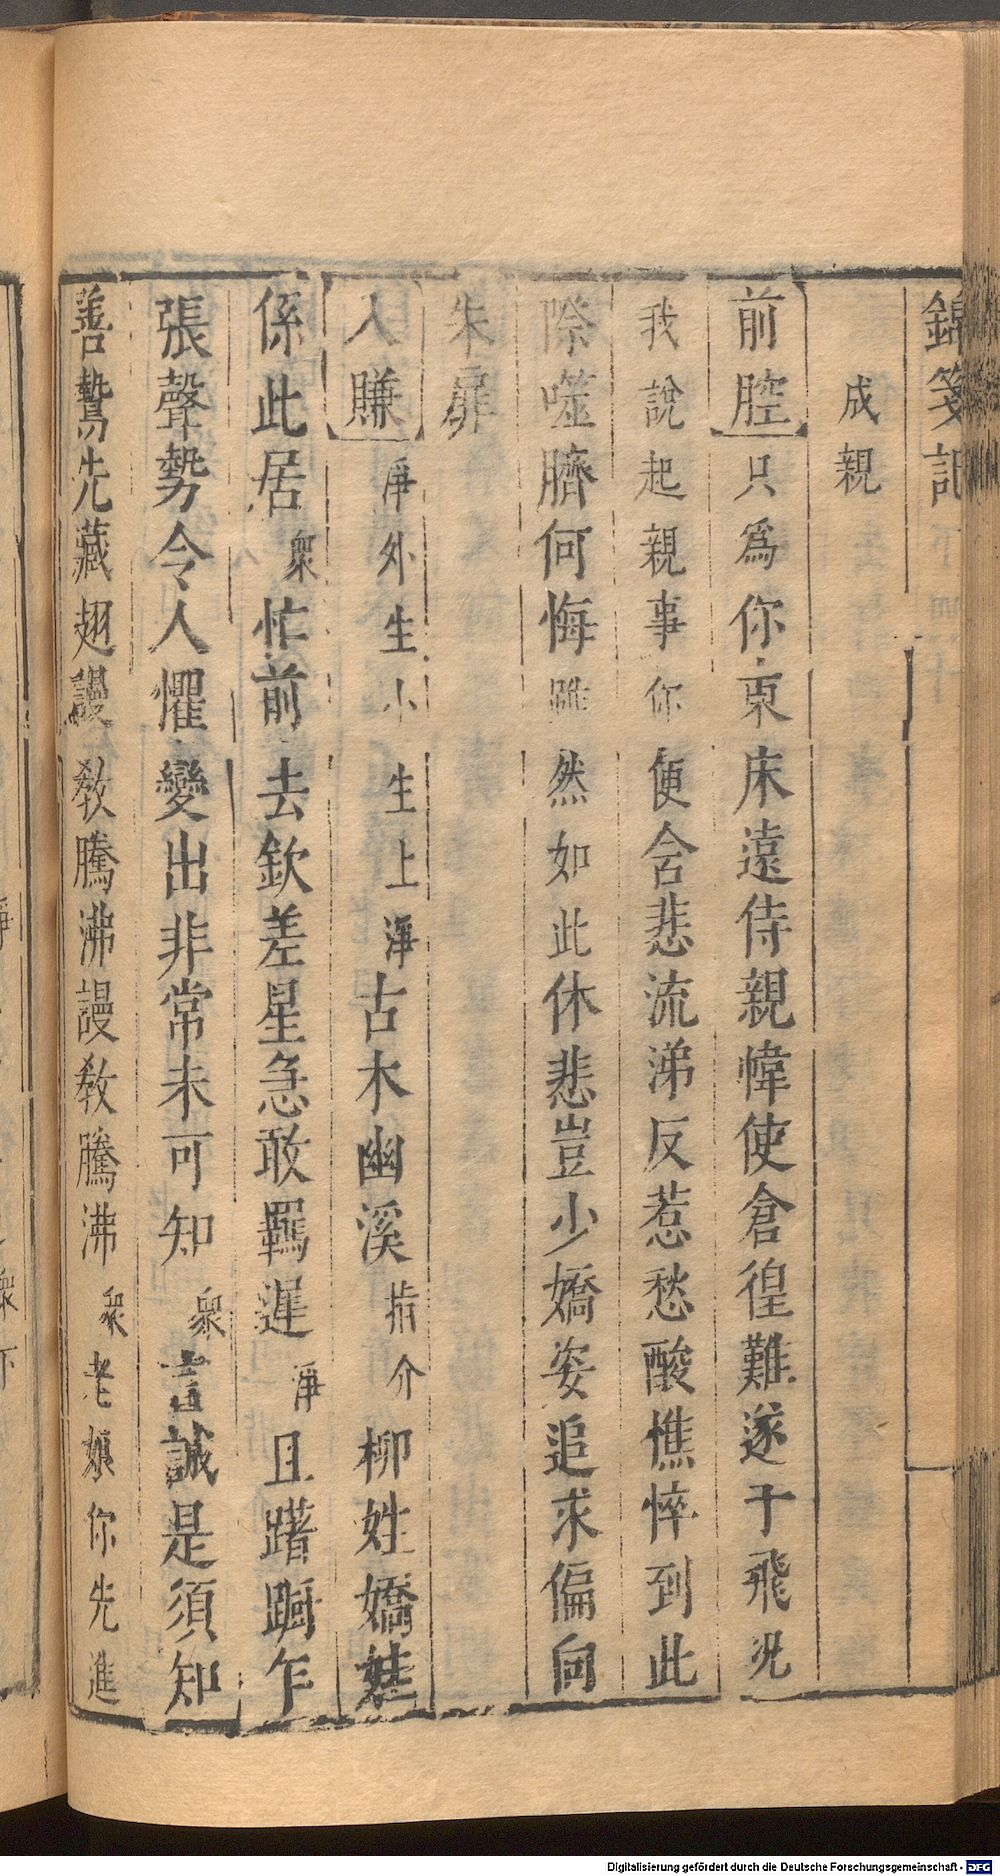 錦箋記
成親
前腔只爲你東床遠侍親幃使倉徨難遂于飛况
我說起親事你便舍悲流涕反惹愁酸憔悴到此
際噬臍何悔雖然如此休悲豈少嬌姿追求偏向
朱扉
入賺淨外生小生上淨古木幽溪指介柳姓嬌娃
係此居衆忙前去欽差星急敢羈遲淨且躇蹰乍
張聲勢令人懼變出非常未可知衆言誠是須知
善鷙先藏翅謾教騰沸謾教騰沸衆老娘你先進
Digitalisierung gefördert durch die Deutsche Forschungsgemeinschaft - DFG